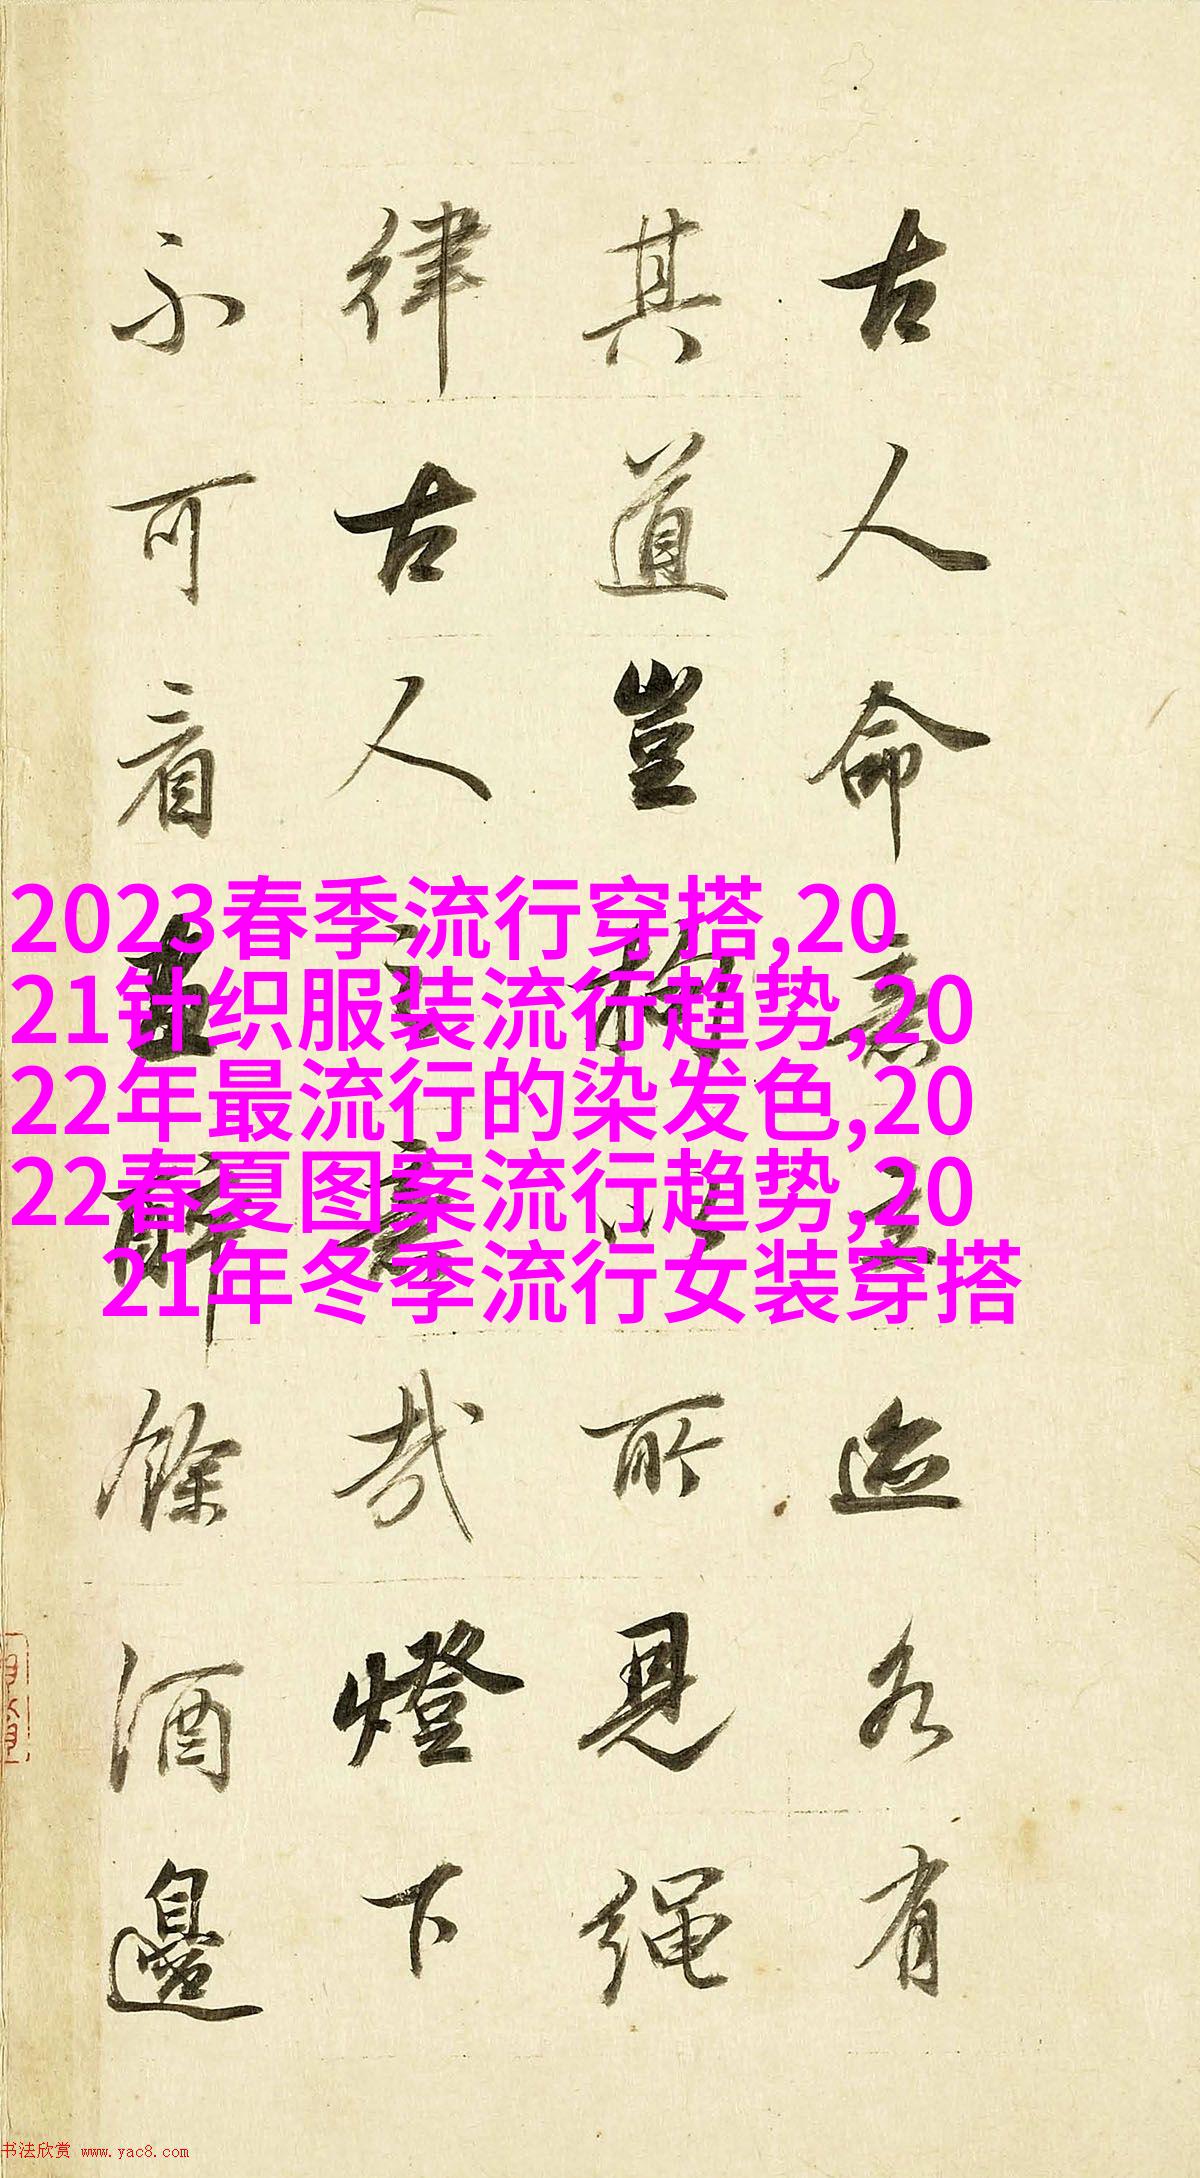 古人命意立迹各有
其道豈以所見繩
律古人之意哉燈下
不可看畫醉餘酒邊
2023春季流行穿搭,20
21针织服装流行趋势,20
22年最流行的染发色,20
22春夏图案流行趋势,20
21年冬季流行女装穿搭
书法欣赏 www.yac8.com